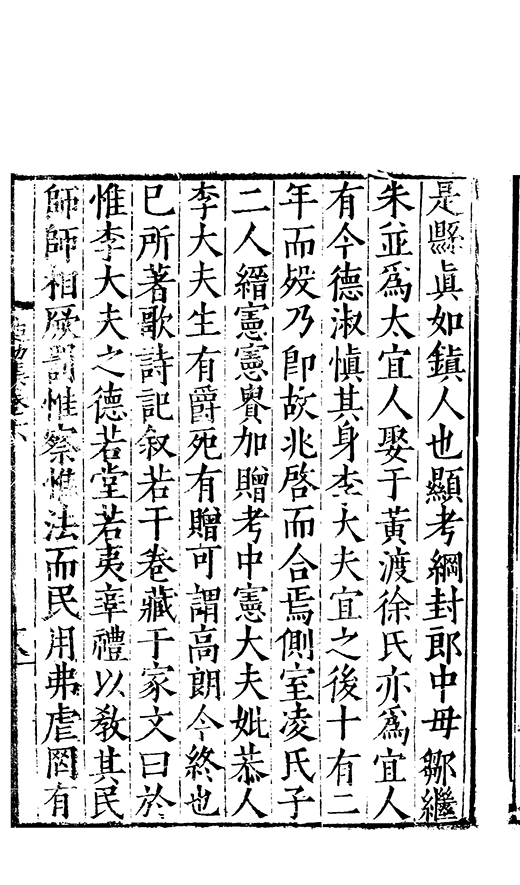 是縣眞如鎮人也顯考綱封郎中母鄒繼
朱並爲太宜人娶于黃渡徐氏亦爲宜人
有今德淑愼其身李大夫宜之後十有二
年而歿乃卽故兆啓而合焉側室凌氏子
二人縉憲憲貴加贈考中憲大夫妣恭人
李大夫生有爵死有贈可謂高朗令終也
巳所著歌詩記叙若干卷藏于家文曰於
惟李大夫之德若堂若夷幸禮以敎其民
師師相厥罰惟察惟法而民用弗虐罔有